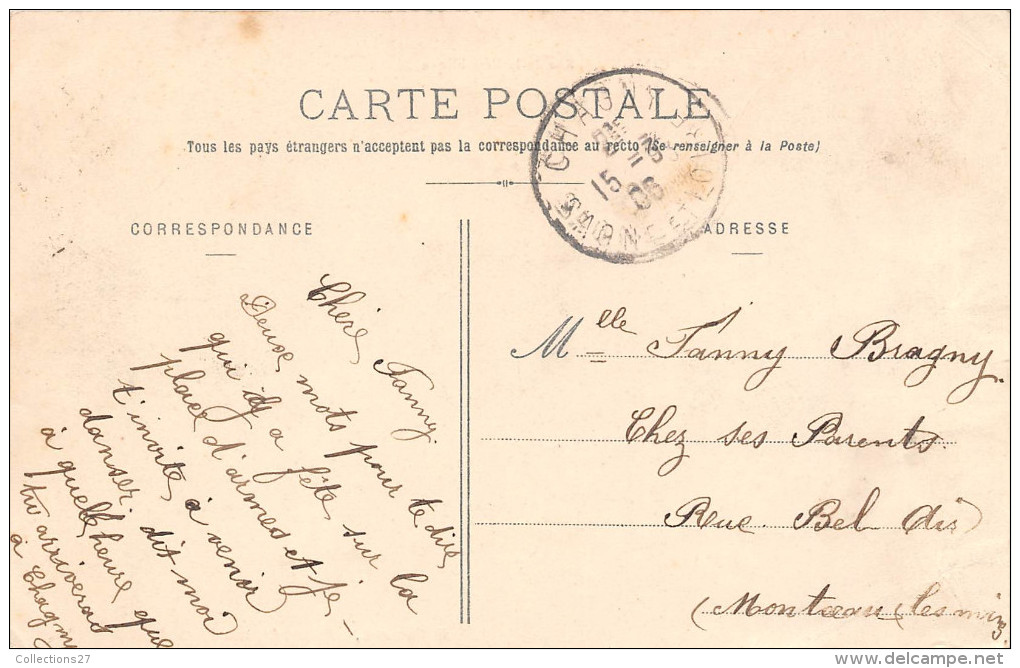 CARTE POSTALE
Tous les pays étrangers n'acceptent pas la correspondance au recto (Se renseigner à la Poste)
CHAGNY
SAONE-ET-LOIRE
15
06
CORRESPONDANCE
ADRESSE
Chère Fanny.
Deuxe mots pour te dire
qui il y a fête sur la
place d'armes et je
t'invite à venir
danser. dit moi
à quelle heure que
tu arriveras
à Chagny
Melle Fanny Bragny.
Chez ses Parents.
Rue Bel Air
(Montceau les mines
Collections27
delcampe.net